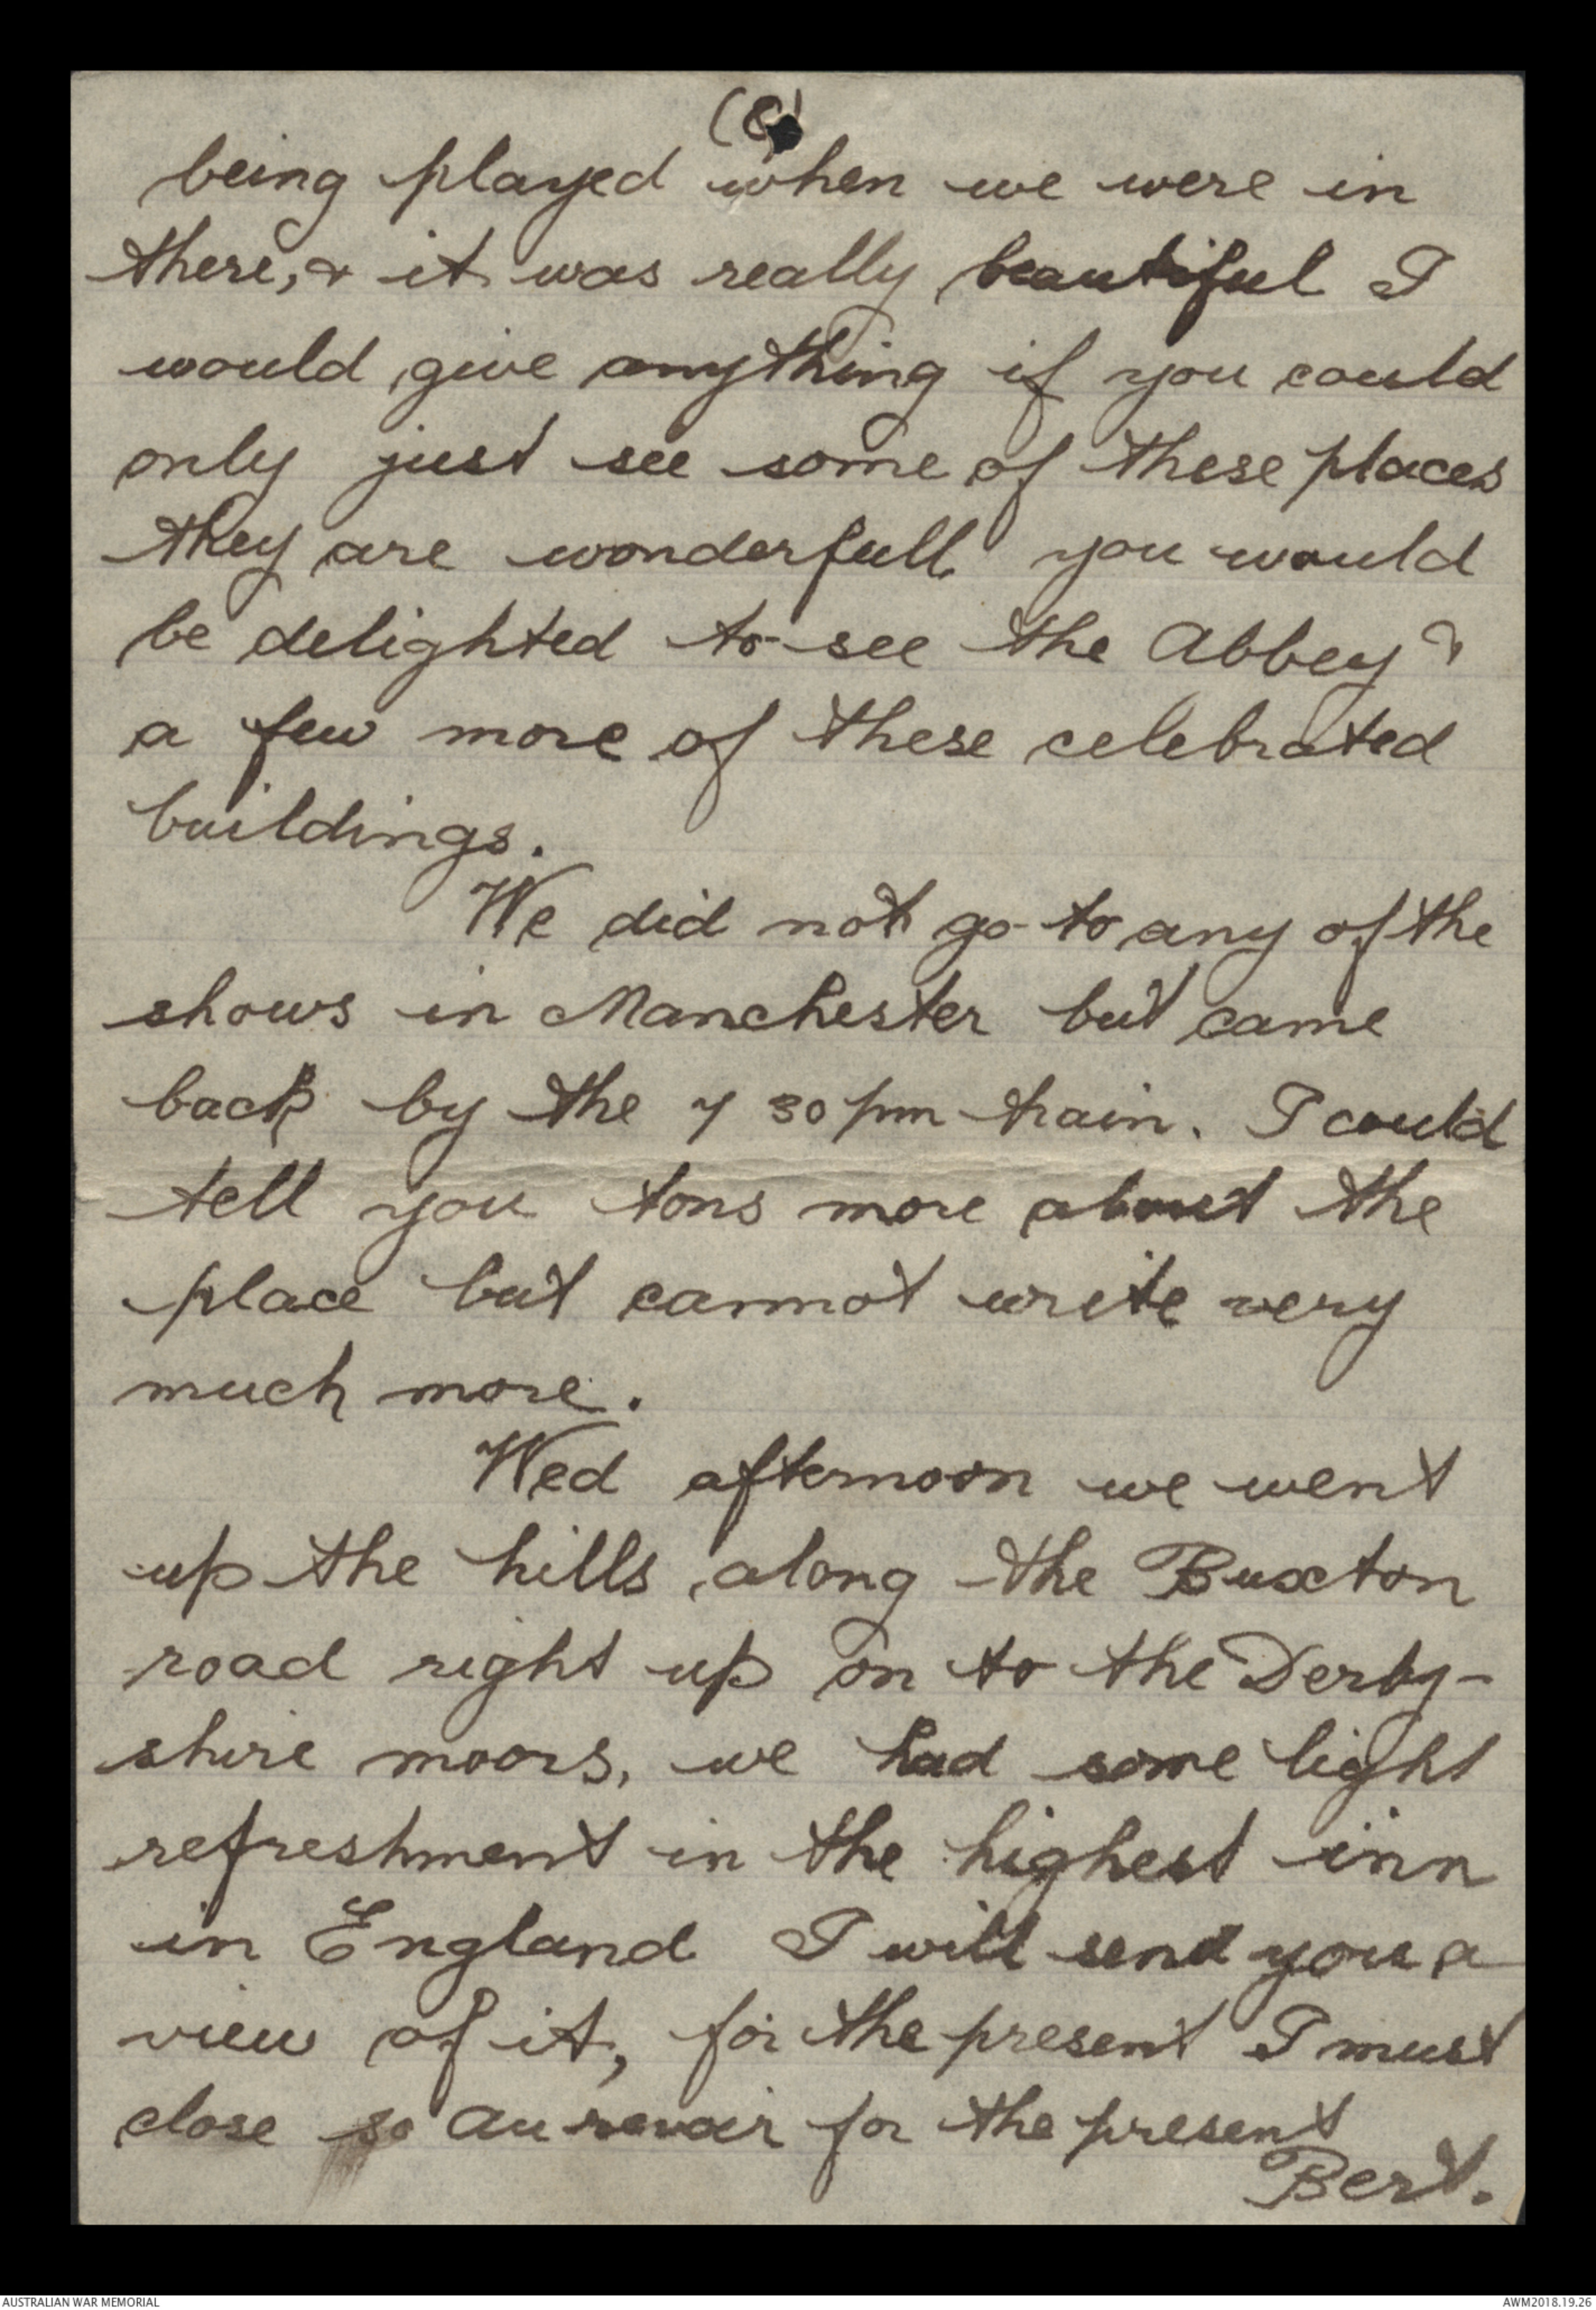 (8)
being played when we were in
there, & it was really beautiful I
would give anything if you could
only just see some of these places
they are wonderfull you would
be delighted to see the Abbey &
a few more of these celebrated
buildings.
We did not go to any of the
shows in Manchester but came
back by the 7 30 pm train. I could
tell you tons more about the
place but cannot write very
much more.
Wed afternoon we went
up the hills along the Buxton
road right up on to the Derby-
shire moors, we had some light
refreshment in the highest inn
in England I will send you a
view of it, for the present I must
close so au revoir for the present
Bert.
AUSTRALIAN WAR MEMORIAL
AWM2018.19.26